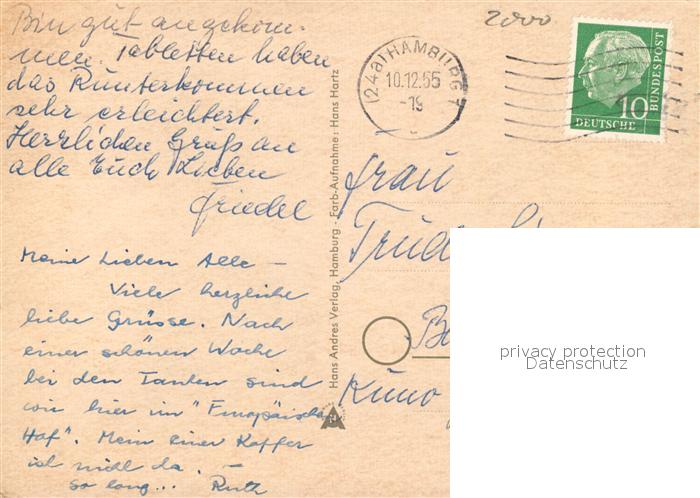 Bin gut angekom-
men. Tabletten haben
das Runterkommen
sehr erleichtert.
Herrlichen Gruß an
alle Euch Lieben
Friedel
Meine Lieben Alle —
Viele herzliche
liebe Grüsse. Nach
einer schönen Woche
bei den Tanten sind
wir hier im "Europäischen
Hof". Mein einer Koffer
ist nicht da. —
So long... Ruth
Hans Andres Verlag, Hamburg - Farb-Aufnahme: Hans Hartz
2000
(24a) HAMBURG 7
10.12.55
-19
10
DEUTSCHE
BUNDESPOST
Frau
Kuno
privacy protection
Datenschutz